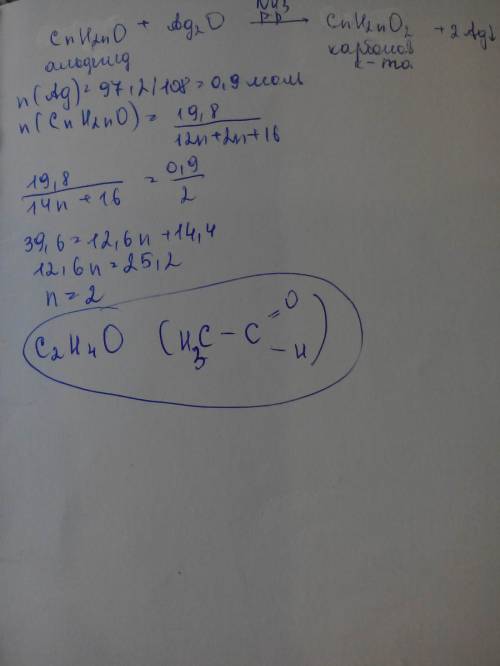 NH3
CnH2nO + Ag2O р-р → CnH2nO2 + 2Ag↓
альдегид карбонов к-та
n(Ag) = 97,2/108 = 0,9 моль
n(CnH2nO) = 19,8 / 12n+2n+16
19,8 / 14n + 16 = 0,9 / 2
39,6 = 12,6n + 14,4
12,6n = 25,2
n = 2
C2H4O (H3C – C =O –H)